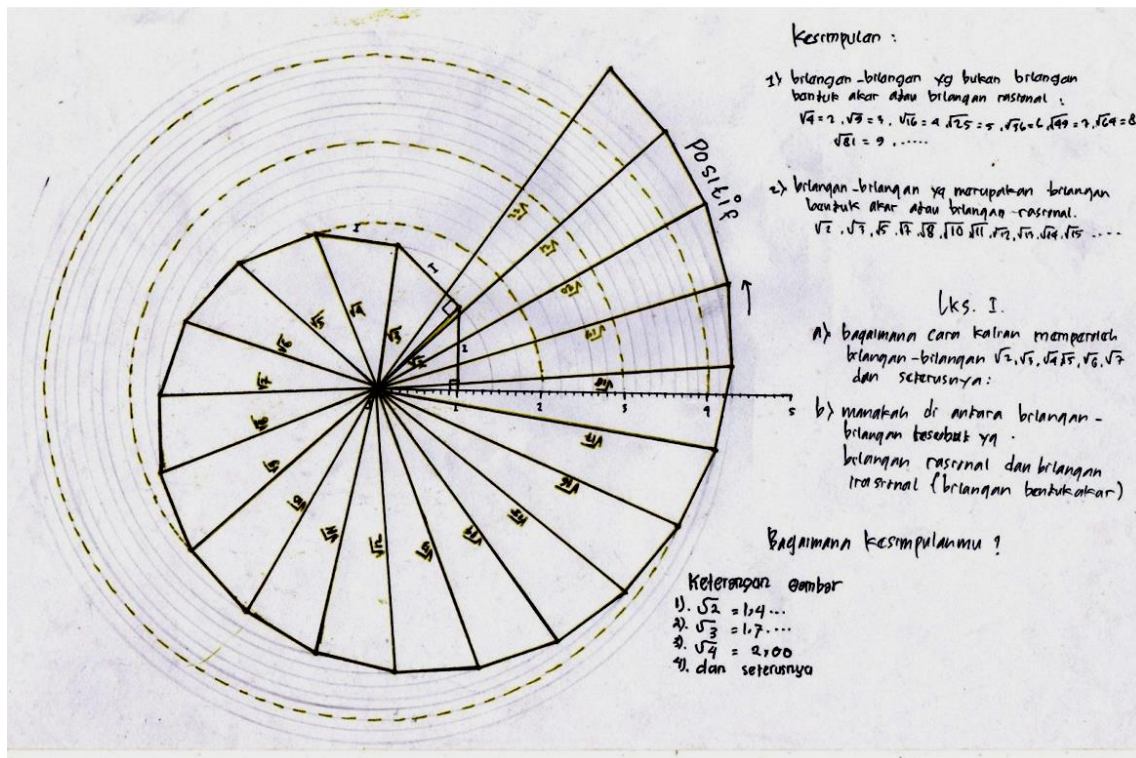 Kesimpulan :
1) bilangan-bilangan yg bukan bilangan
bentuk akar atau bilangan rasional :
√4 = 2, √9 = 3, √16 = 4, √25 = 5, √36 = 6, √49 = 7, √64 = 8
√81 = 9, .....
2) bilangan-bilangan yg merupakan bilangan
bentuk akar atau bilangan-rasional.
√2, √3, √5, √7, √8, √10, √11, √12, √13, √14, √15 ....
LKS. I.
a) bagaimana cara kalian memperoleh
bilangan-bilangan √2, √3, √4, √5, √6, √7
dan seterusnya :
b) manakah di antara bilangan-
bilangan tersebut yg
bilangan rasional dan bilangan
irasional (bilangan bentuk akar)
Bagaimana kesimpulanmu ?
Keterangan Gambar
1). √2 = 1,4...
2). √3 = 1,7....
3). √4 = 2,00
4). dan seterusnya
Positif
1
1
1
√3
√4
√5
√6
√7
√12
√17
√18
√19
√20
1
2
3
4
5